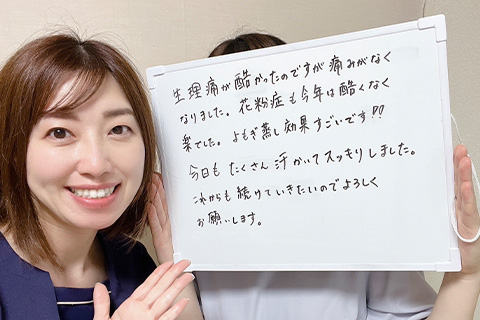 生理痛が酷かったのですが痛みがなく
なりました。花粉症も今年は酷くなく
楽でした。よもぎ蒸し効果すごいです!!
今日もたくさん汗かいてスッキリしました。
これからも続けていきたいのでよろしく
お願いします。